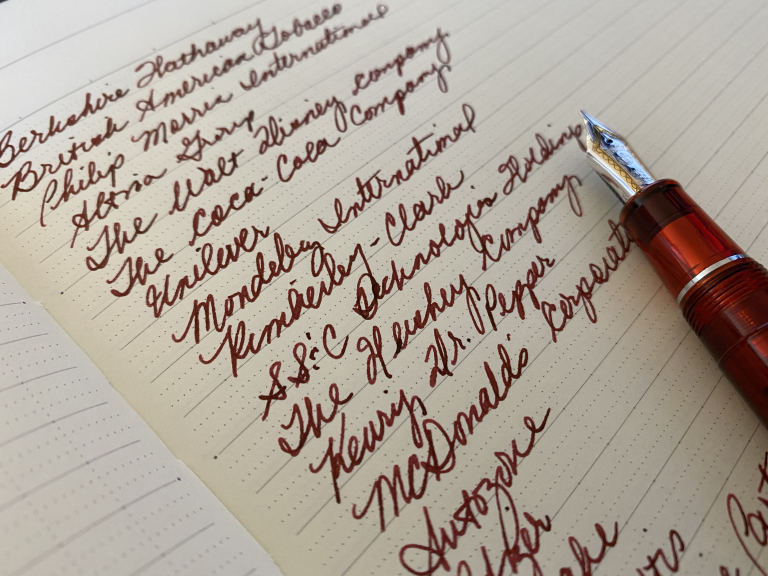 Berkshire Hathaway
British American Tobacco
Philip Morris International
Altria Group
The Walt Disney Company
The Coca-Cola Company
Unilever
Mondeley International
Kimberley-Clark
SS&C Technologies Holdin
The Hershey Company
Keurig Dr. Pepper
McDonald's Corporati
Autozone